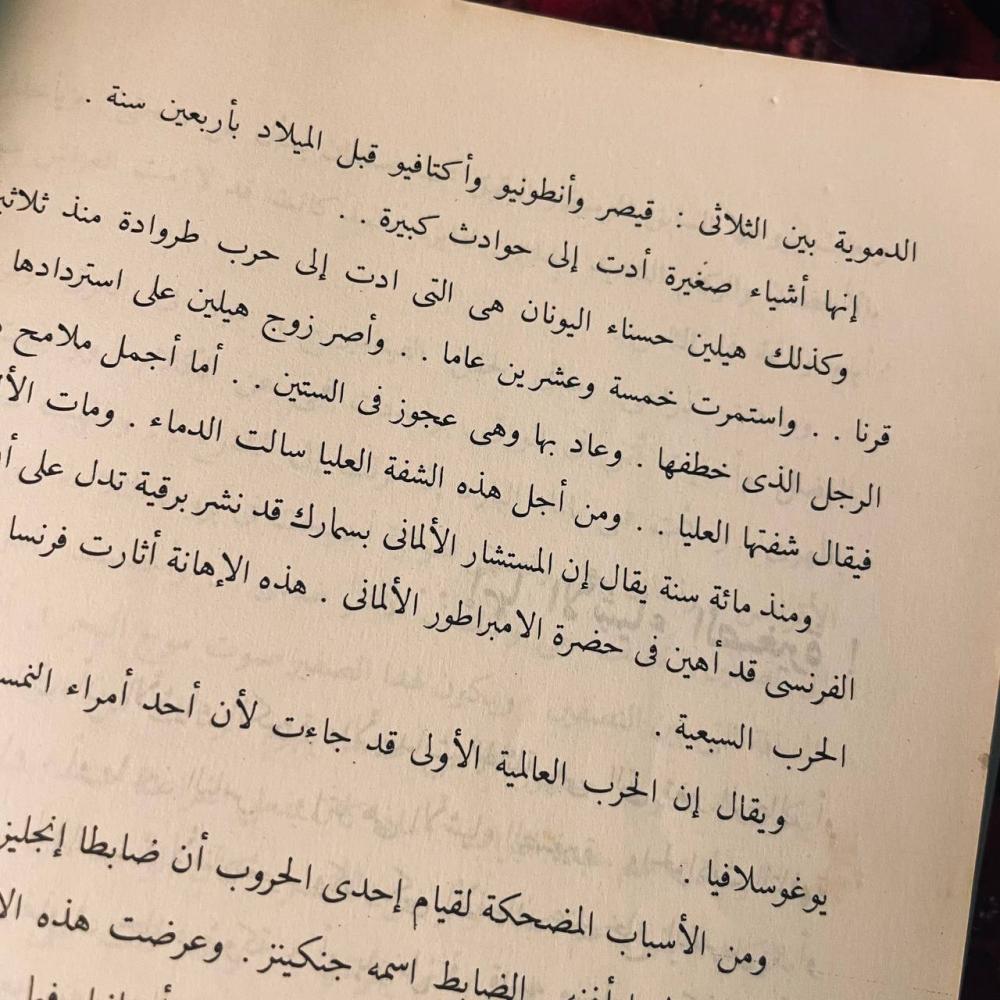 الدموية بين الثلاثى : قيصر وأنطونيو وأكتافيو قبل الميلاد بأربعين سنة .
إنها أشياء صغيرة أدت إلى حوادث كبيرة . .
وكذلك هيلين حسناء اليونان هى التى ادت إلى حرب طروادة منذ
قرنا . . واستمرت خمسة وعشرين عاما . . وأصر زوج هيلين على استردادها
الرجل الذى خطفها . وعاد بها وهى عجوز فى الستين . . أما أجمل ملامح
فيقال شفتها العليا . . ومن أجل هذه الشفة العليا سالت الدماء . ومات
ومنذ مائة سنة يقال إن المستشار الألمانى بسمارك قد نشر برقية تدل على
الفرنسى قد أهين فى حضرة الامبراطور الألمانى . هذه الإهانة أثارت فرنسا
الحرب السبعية .
ويقال إن الحرب العالمية الأولى قد جاءت لأن أحد أمراء
يوغوسلافيا .
ومن الأسباب المضحكة لقيام إحدى الحروب أن ضابطا
الضابط اسمه جنكينز . وعرضت هذه